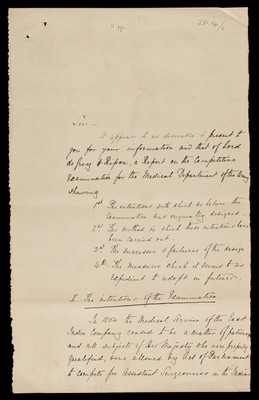 Sir –
It appears to us desirable to present to
you for your information and that of Lord
de Grey & Ripon, a Report on the Competitive
Examination for the Medical Department of the Army
shewing
1st The intentions with which we believe the
Examination was originally designed
2nd The method in which these intentions have
been carried out.
3rd The successes & failures of the design
4th The measures which it seems to us
expedient to adopt in future.
I. The intentions of the Examination
the Medical Service of the East
India Company ceased to be a matter of patronage
and all subjects of Her Majesty who were properly
qualified, were allowed by Act of Parliament
to compete for Assistant Surgeoncies in the Indian